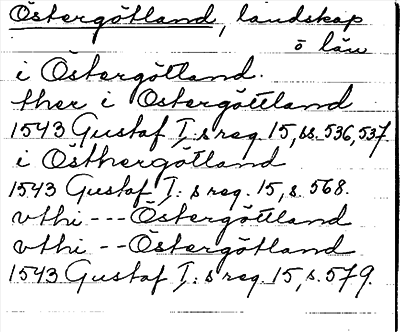 Östergötland, landskap
o län
i Östergötland.
ther i Östergöttland
1543 Gustaf I:s reg. 15, ss. 536, 537.
i Östhergötland
1543 Gustaf I:s reg. 15, s. 568.
vthi --- Östergöttland
vthi -- Östergötland
1543 Gustaf I:s reg. 15, s. 579.